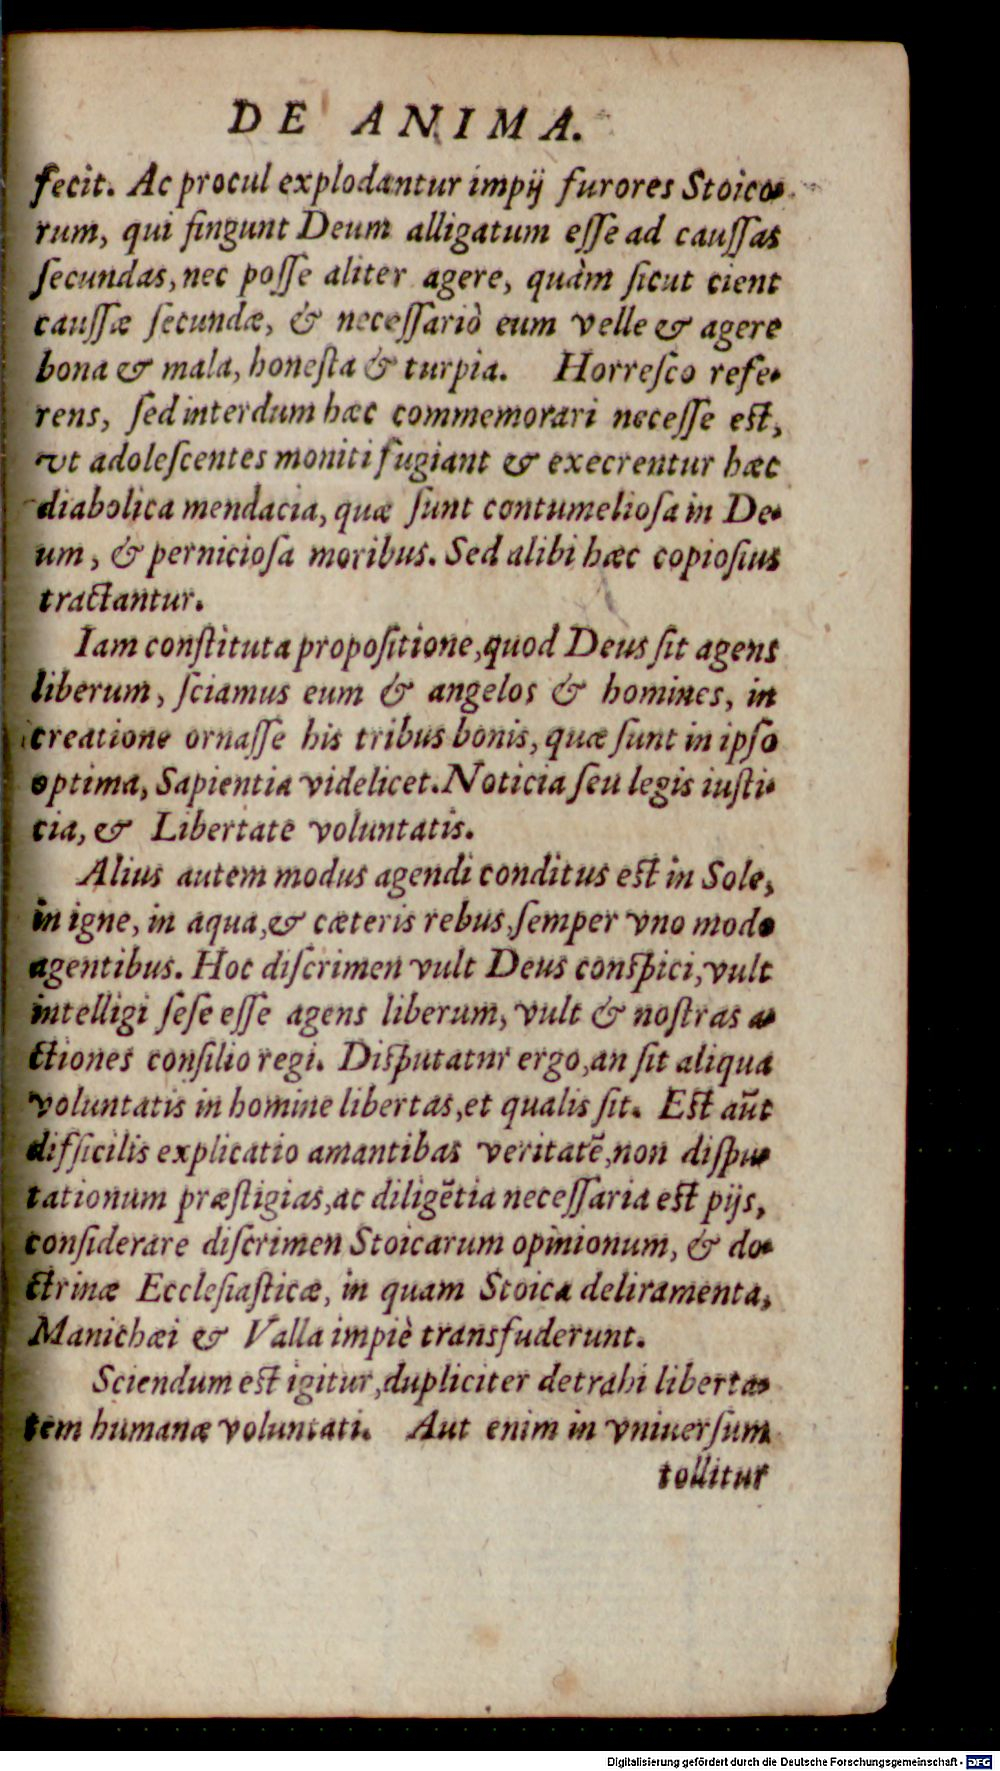 DE ANIMA.
fecit. Ac procul explodantur impij furores Stoico-
rum, qui fingunt Deum alligatum eſſe ad cauſſas
ſecundas, nec poſſe aliter agere, quàm ſicut cient
cauſſæ ſecundæ, & neceſſariò eum velle & agere
bona & mala, honeſta & turpia. Horreſco refe-
rens, ſed interdum hæc commemorari neceſſe eſt,
vt adoleſcentes moniti fugiant & execrentur hæc
diabolica mendacia, quæ ſunt contumelioſa in De-
um, & pernicioſa moribus. Sed alibi hæc copioſius
tractantur.
Iam conſtituta propoſitione, quod Deus ſit agens
liberum, ſciamus eum & angelos & homines, in
creatione ornaſſe his tribus bonis, quæ ſunt in ipſo
optima, Sapientia videlicet. Noticia ſeu legis iuſti-
cia, & Libertate voluntatis.
Alius autem modus agendi conditus eſt in Sole,
in igne, in aqua, & cæteris rebus, ſemper vno modo
agentibus. Hoc diſcrimen vult Deus conſpici, vult
intelligi ſeſe eſſe agens liberum, vult & noſtras a-
ctiones conſilio regi. Diſputatnr ergo, an ſit aliqua
voluntatis in homine libertas, et qualis ſit. Eſt aūt
difficilis explicatio amantibas veritatē, non diſpu-
tationum præſtigias, ac diligētia neceſſaria eſt pijs,
conſiderare diſcrimen Stoicarum opinionum, & do-
ctrinæ Eccleſiaſticæ, in quam Stoica deliramenta,
Manichæi & Valla impiè transfuderunt.
Sciendum eſt igitur, dupliciter detrahi liberta-
tem humanæ voluntati. Aut enim in vniuerſum
tollitur
Digitalisierung gefördert durch die Deutsche Forschungsgemeinschaft - DFG